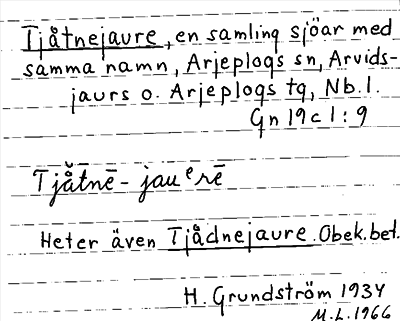 Tjåtnejaure, en samling sjöar med
samma namn, Arjeplogs sn, Arvids-
jaurs o. Arjeplogs tg, Nb.l.
Gn 19c1:9
Tjå̆tnē-jauᵉrē
Heter även Tjådnejaure. Obek.bet.
H. Grundström 1934
M.L. 1966